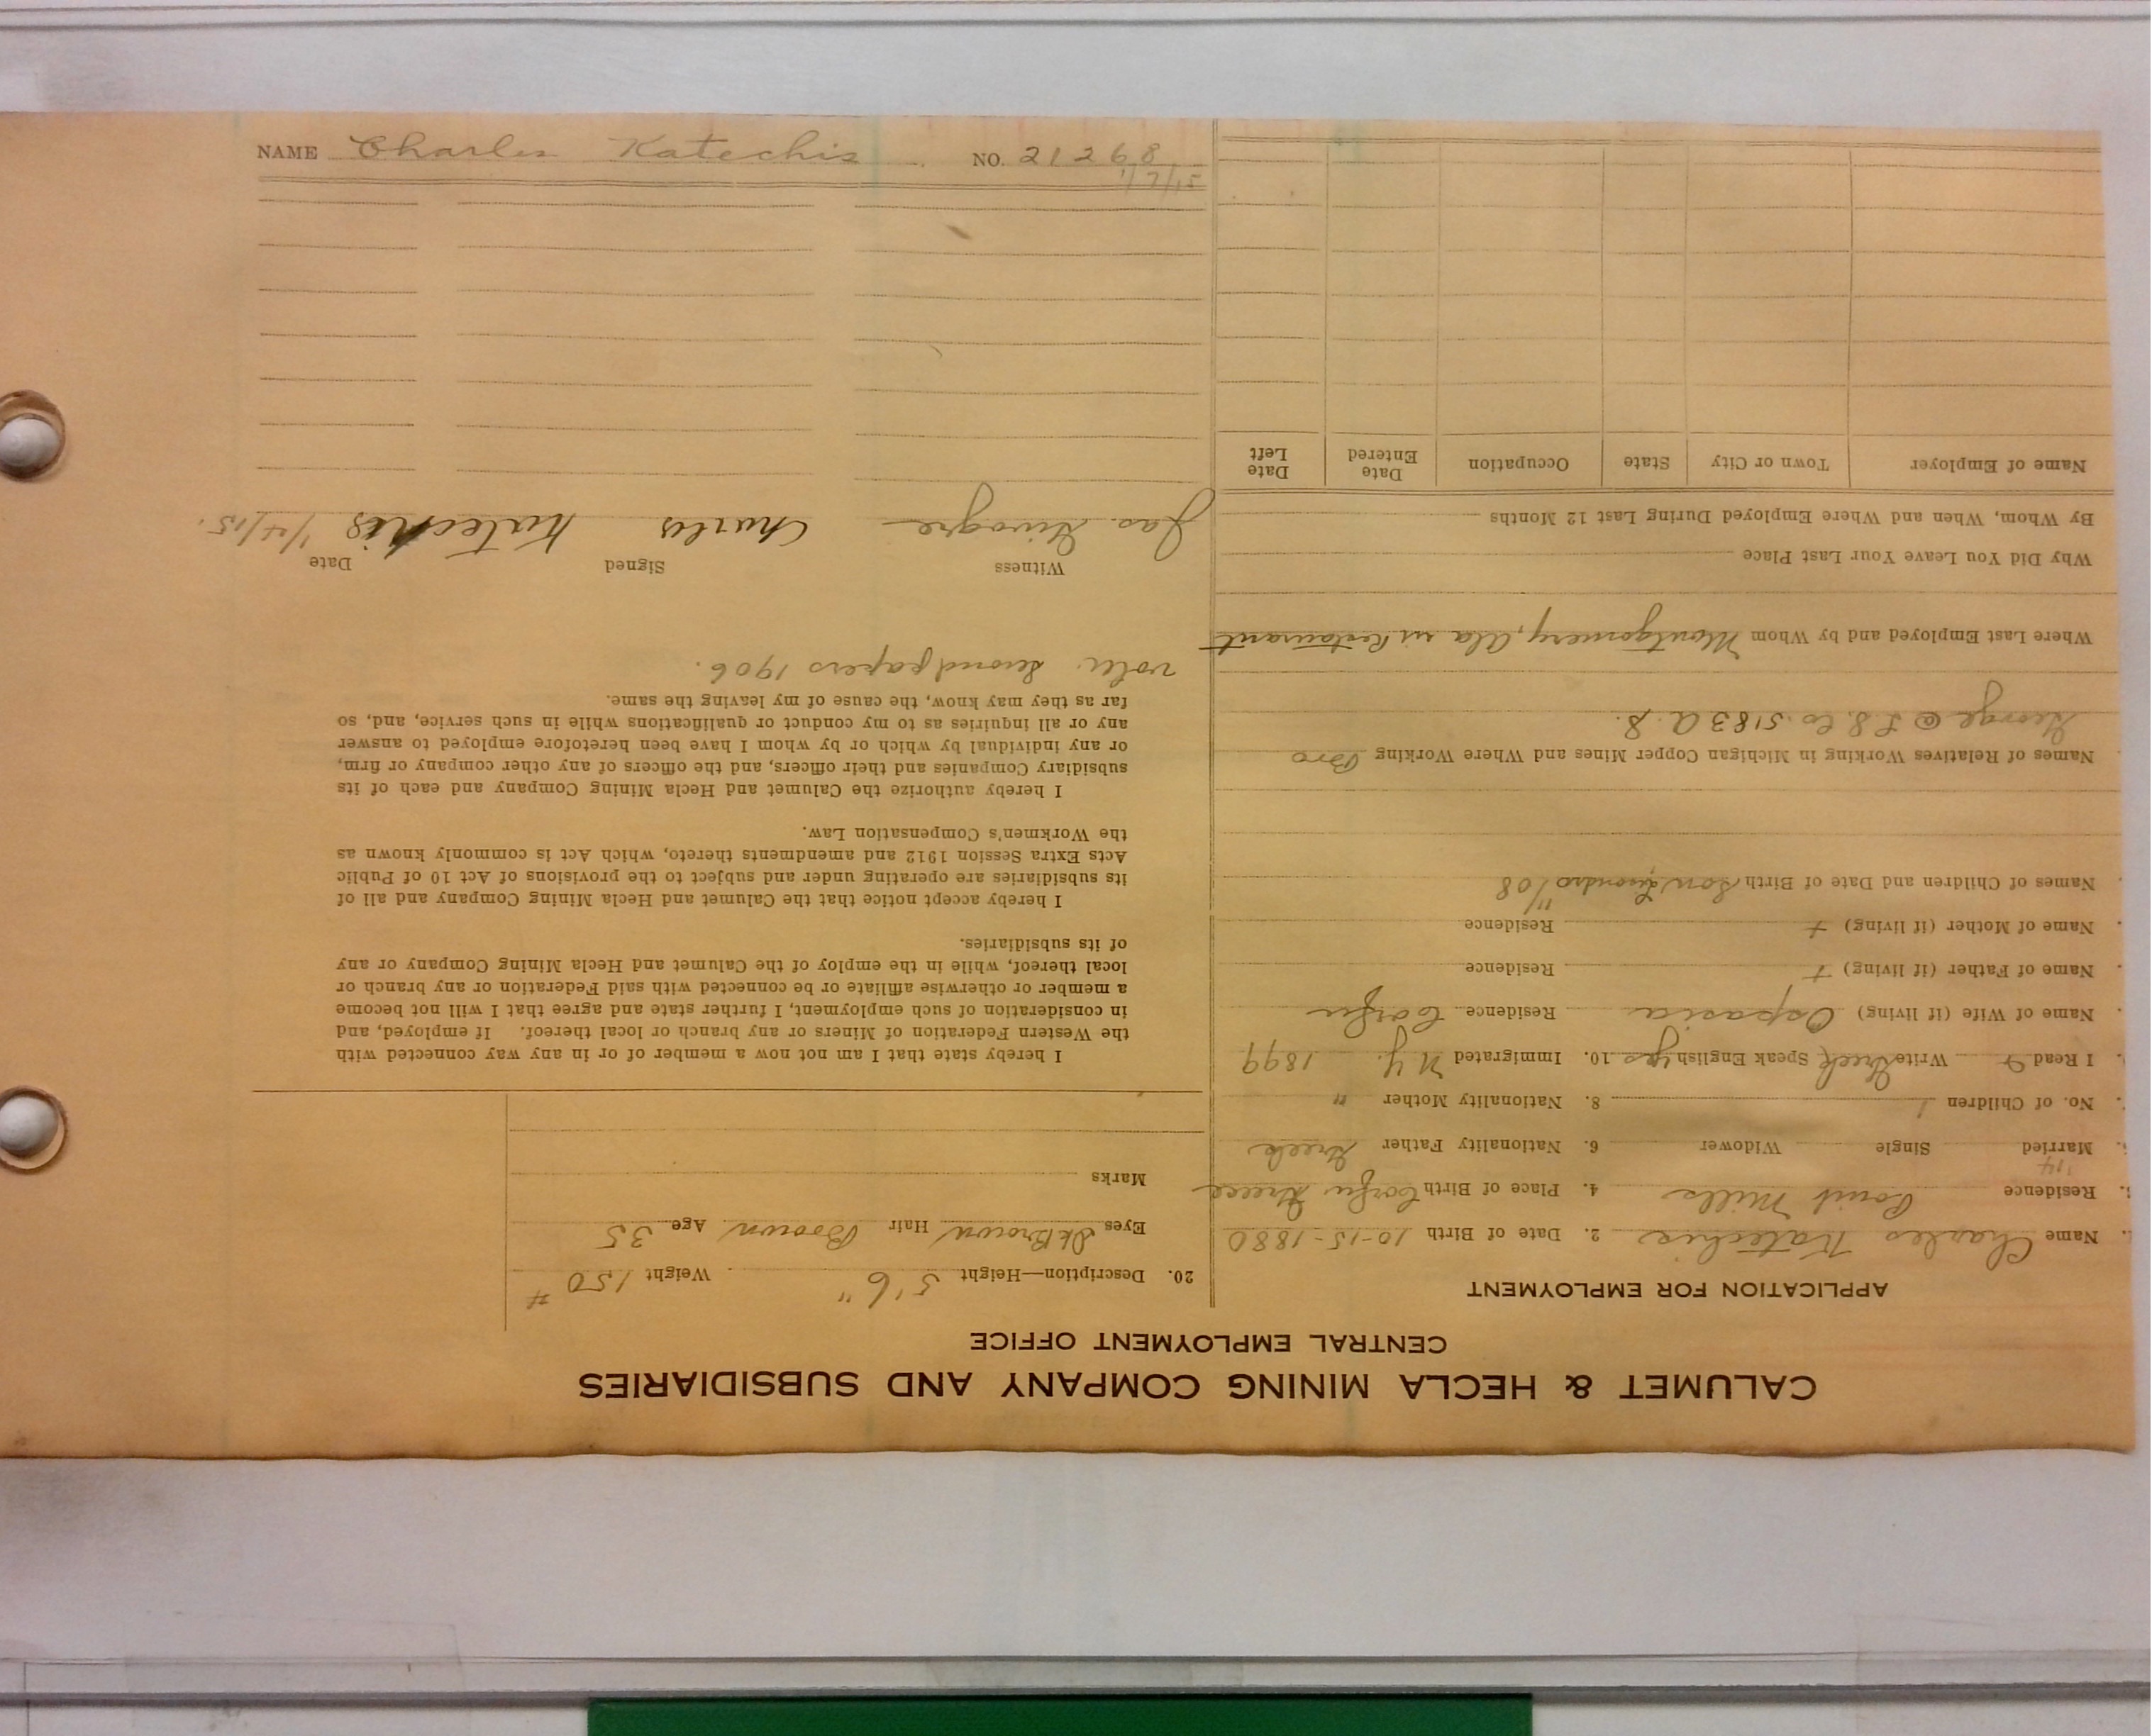 CALUMET & HECLA MINING COMPANY AND SUBSIDIARIES
CENTRAL EMPLOYMENT OFFICE
APPLICATION FOR EMPLOYMENT
Name Charles Katechis 2. Date of Birth 10-15-1880
Residence Point Mills 4. Place of Birth Corfu Greece
Married '14 Single Widower 6. Nationality Father Greek
No. of Children 1 8. Nationality Mother "
I Read & Write Greek Speak English yes 10. Immigrated N.Y. 1899
Name of Wife (if living) Aspasia Residence Corfu
Name of Father (if living) + Residence
Name of Mother (if living) + Residence
Names of Children and Date of Birth Son 11/08
Names of Relatives Working in Michigan Copper Mines and Where Working Bro
George @ L.S. Co. 5183 A.S.
Where Last Employed and by Whom Montgomery, Ala in Restaurant
Why Did You Leave Your Last Place
By Whom, When and Where Employed During Last 12 Months
Name of Employer Town or City State Occupation Date Entered Date Left
20. Description—Height 5'6" Weight 150 #
Eyes Dk Brown Hair Brown Age 35
Marks
I hereby state that I am not now a member of or in any way connected with
the Western Federation of Miners or any branch or local thereof. If employed, and
in consideration of such employment, I further state and agree that I will not become
a member or otherwise affiliate or be connected with said Federation or any branch or
local thereof, while in the employ of the Calumet and Hecla Mining Company or any
of its subsidiaries.
I hereby accept notice that the Calumet and Hecla Mining Company and all of
its subsidiaries are operating under and subject to the provisions of Act 10 of Public
Acts Extra Session 1912 and amendments thereto, which Act is commonly known as
the Workmen's Compensation Law.
I hereby authorize the Calumet and Hecla Mining Company and each of its
subsidiary Companies and their officers, and the officers of any other company or firm,
or any individual by which or by whom I have been heretofore employed to answer
any or all inquiries as to my conduct or qualifications while in such service, and, so
far as they may know, the cause of my leaving the same.
voter second papers 1906.
Witness Signed Date
Jas. Charles Katechis 1/4/15.
NAME Charles Katechis NO. 21268
1/7/15